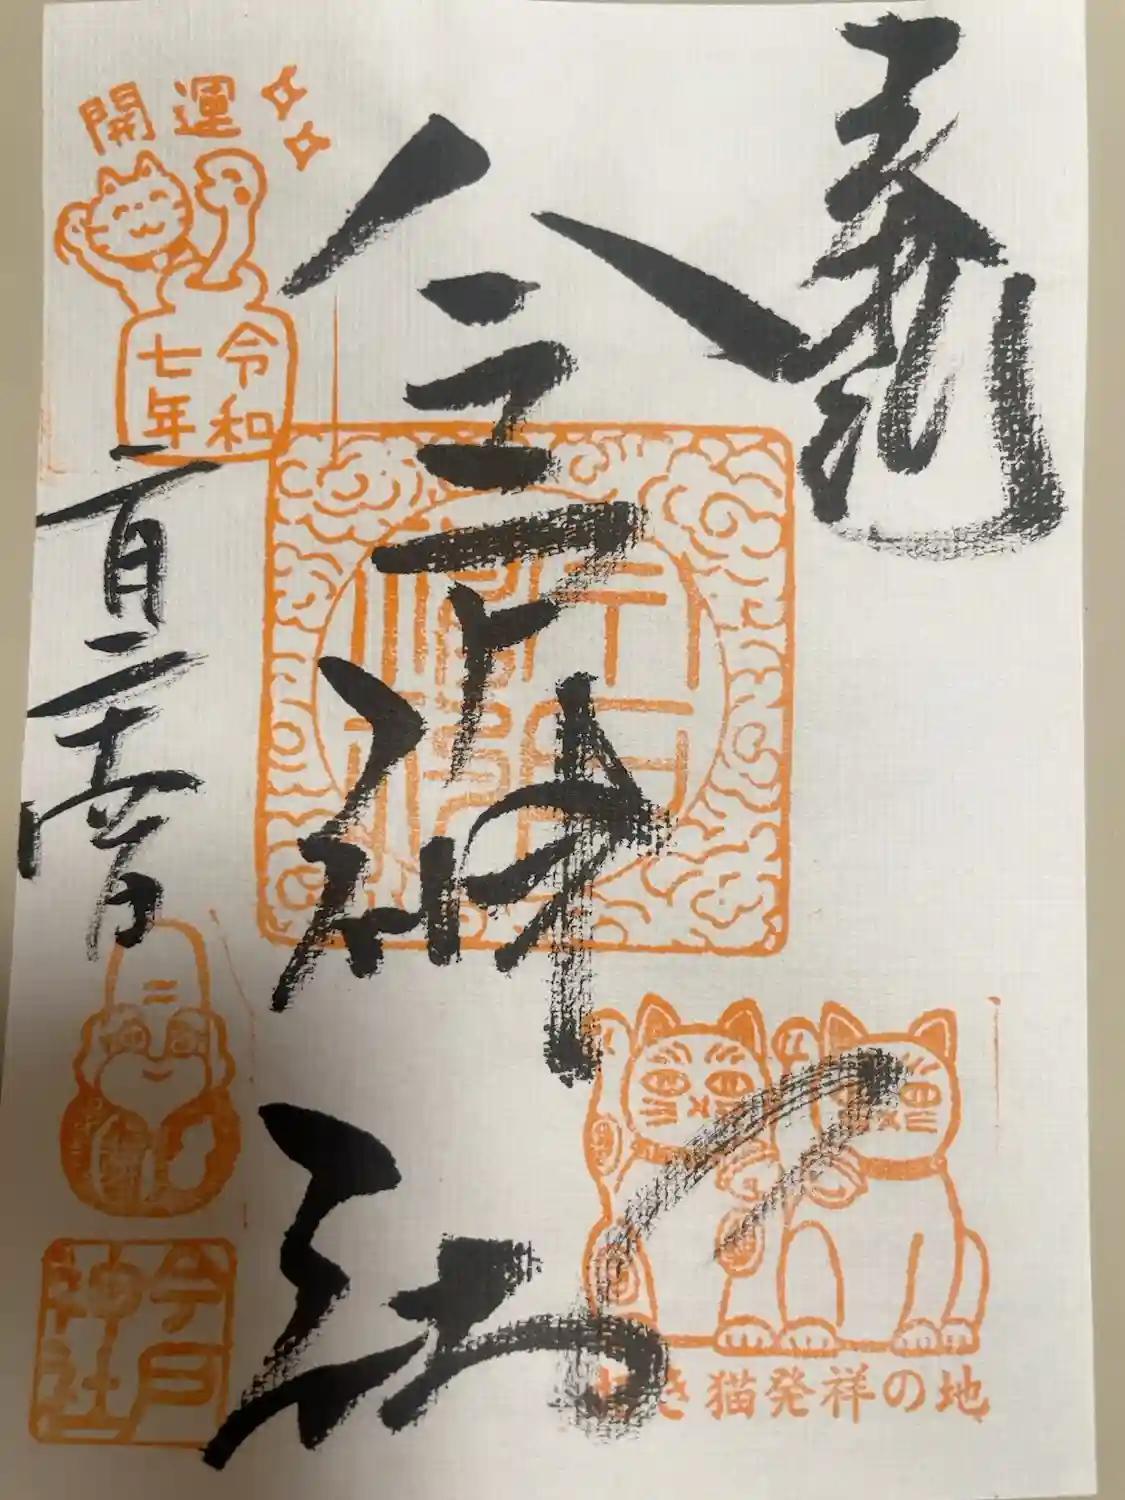 奉拝
今戸神社
開運
令和
七年
一月二十六日
今戸
神社
招き猫発祥の地